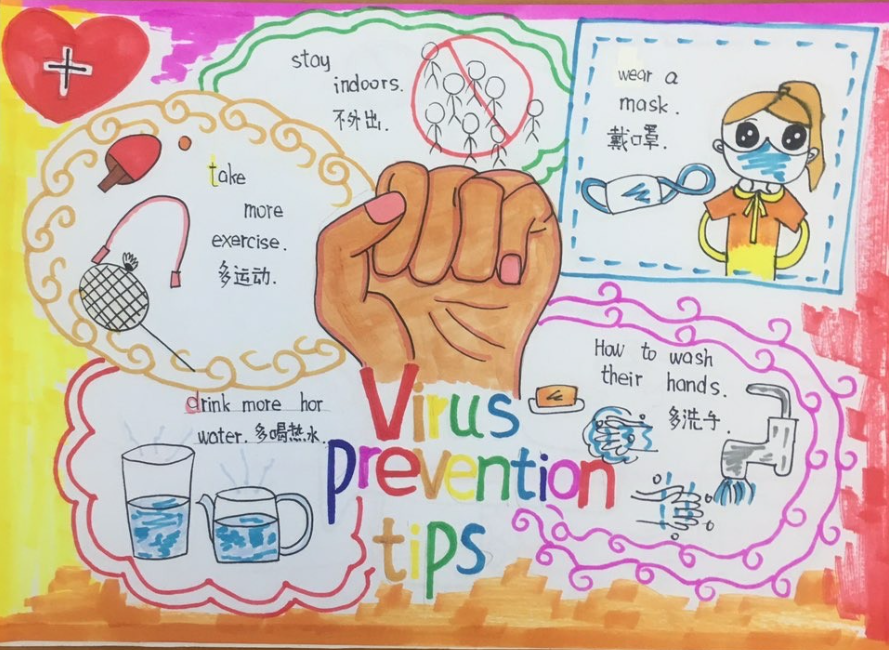 stay
indoors.
不外出.
wear a
mask.
戴口罩.
take
more
exercise.
多运动.
How to wash
their hands.
多洗手.
drink more hor
water. 多喝热水.
Virus
prevention
tips